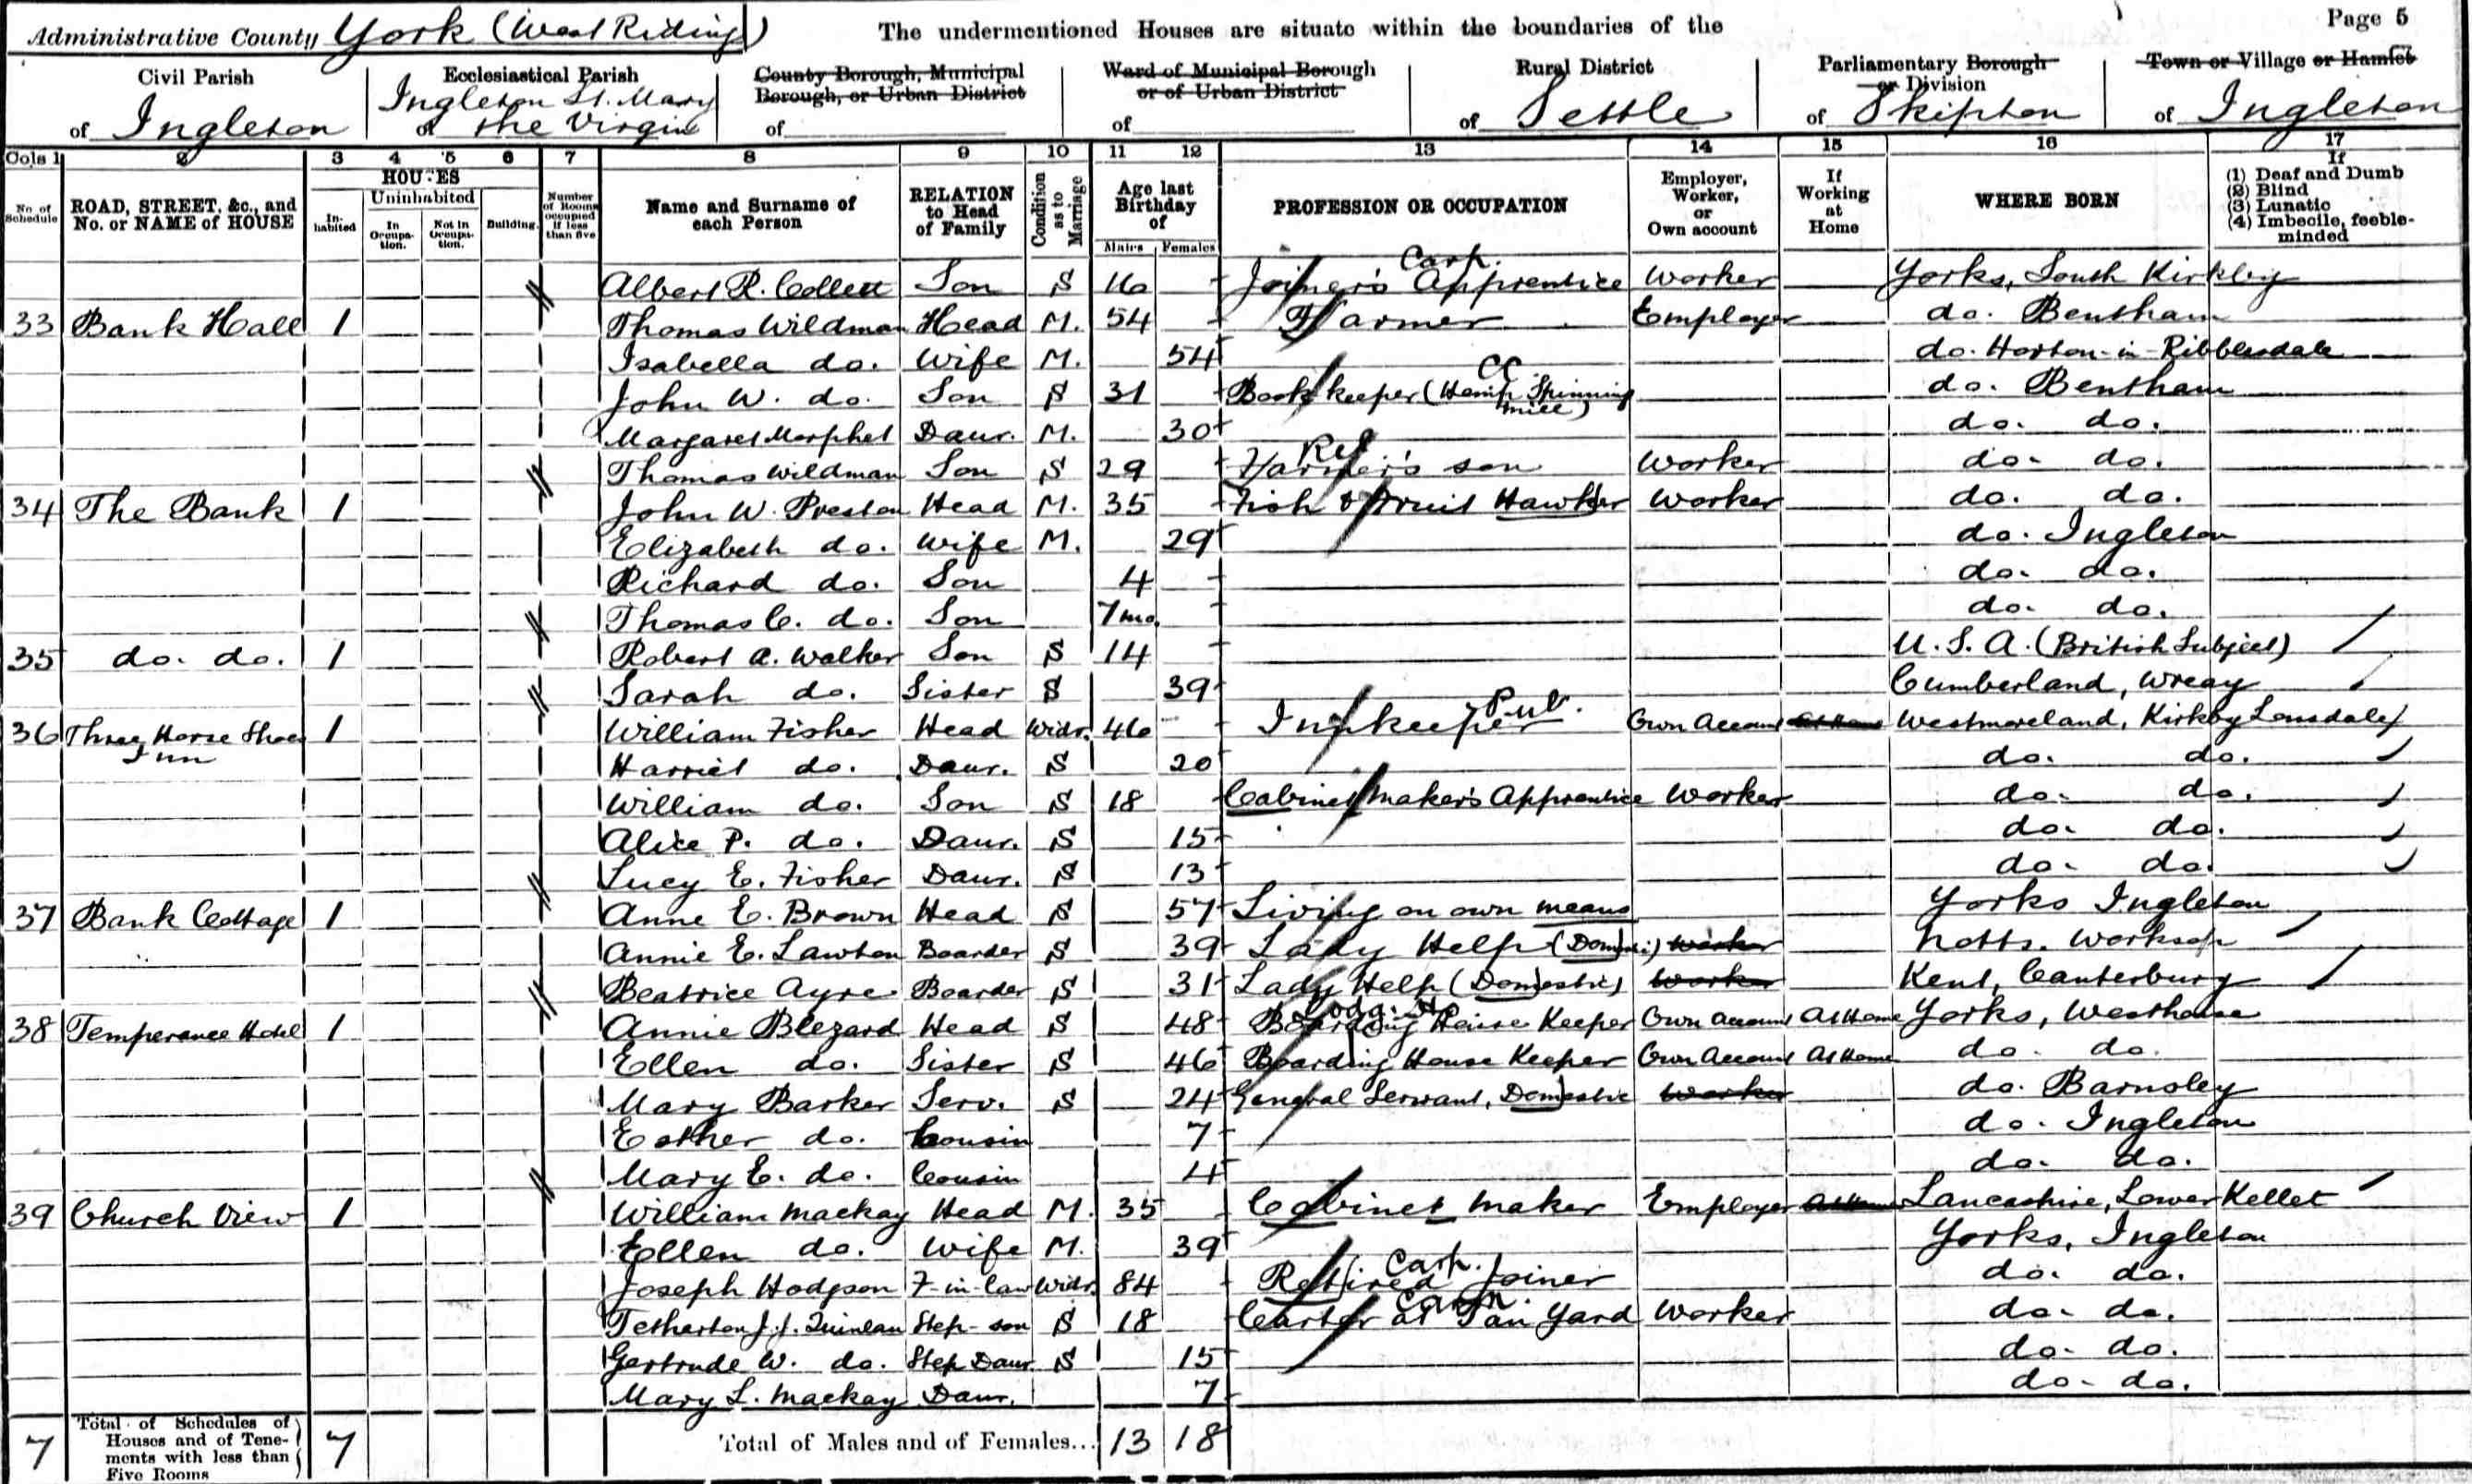 Page 5
Administrative County York (West Riding) The undermentioned Houses are situate within the boundaries of the
Civil Parish of Ingleton
Ecclesiastical Parish of Ingleton St. Mary the Virgin
County Borough, Municipal Borough, or Urban District of
Ward of Municipal Borough or of Urban District of
Rural District of Settle
Parliamentary Borough or Division of Skipton
Town or Village or Hamlet of Ingleton
Cols 1 2 3 4 5 6 7 8 9 10 11 12 13 14 15 16 17
No. of Schedule
ROAD, STREET, &c., and No. or NAME of HOUSE
HOUSES
Inhabited
Uninhabited
In Occupation.
Not in Occupation.
Building.
Number of Rooms occupied if less than five
Name and Surname of each Person
RELATION to Head of Family
Condition as to Marriage
Age last Birthday of
Males Females
PROFESSION OR OCCUPATION
Employer, Worker, or Own account
If Working at Home
WHERE BORN
If
(1) Deaf and Dumb
(2) Blind
(3) Lunatic
(4) Imbecile, feeble-minded
Albert R. Collett Son S 16 Joiner's Apprentice Carp. Worker Yorks, South Kirkby
33 Bank Hall 1 Thomas Wildman Head M. 54 Farmer Employer do. Bentham
Isabella do. Wife M. 54 do. Horton-in-Ribblesdale
John W. do. Son S 31 Book keeper (Hemp Spinning Mill) CC do. Bentham
Margaret Morphet Daur. M. 30 do. do.
Thomas Wildman Son S 29 Farmer's son Rel Worker do. do.
34 The Bank 1 John W. Preston Head M. 35 Fish & Fruit Hawker Worker do. do.
Elizabeth do. Wife M. 29 do. Ingleton
Richard do. Son 4 do. do.
Thomas C. do. Son 7 mo. do. do.
35 do. do. 1 Robert A. Walker Son S 14 U.S.A. (British Subject)
Sarah do. Sister S 39 Cumberland, Wreay
36 Three Horse Shoes Inn 1 William Fisher Head Widr. 46 Innkeeper Pub. Own Account At Home Westmoreland, Kirkby Lonsdale
Harriet do. Daur. S 20 do. do.
William do. Son S 18 Cabinet maker's Apprentice Worker do. do.
Alice P. do. Daur. S 15 do. do.
Lucy E. Fisher Daur. S 13 do. do.
37 Bank Cottage 1 Anne E. Brown Head S 57 Living on own means Yorks Ingleton
Annie E. Lawton Boarder S 39 Lady Help (Domestic) Worker Notts. Worksop
Beatrice Ayre Boarder S 31 Lady Help (Domestic) Worker Kent, Canterbury
38 Temperance Hotel 1 Annie Blezard Head S 48 Boarding House Keeper Own Account At Home Yorks, Westhouse
Ellen do. Sister S 46 Boarding House Keeper Own Account At Home do. do.
Mary Barker Serv. S 24 General Servant, Domestic Worker do. Barnsley
Esther do. Cousin 7 do. Ingleton
Mary E. do. Cousin 4 do. do.
39 Church View 1 William Mackay Head M. 35 Cabinet maker Employer At Home Lancashire, Lower Kellet
Ellen do. Wife M. 39 Yorks, Ingleton
Joseph Hodgson F-in-law Widr. 84 Retired Joiner Carp. do. do.
Tetherton J. J. Quinlan Step-son S 18 Carter at Tan Yard Carm. Worker do. do.
Gertrude W. do. Step Daur S 15 do. do.
Mary L. Mackay Daur. 7 do. do.
7 Total of Schedules of Houses and of Tenements with less than Five Rooms 7 Total of Males and of Females... 13 18